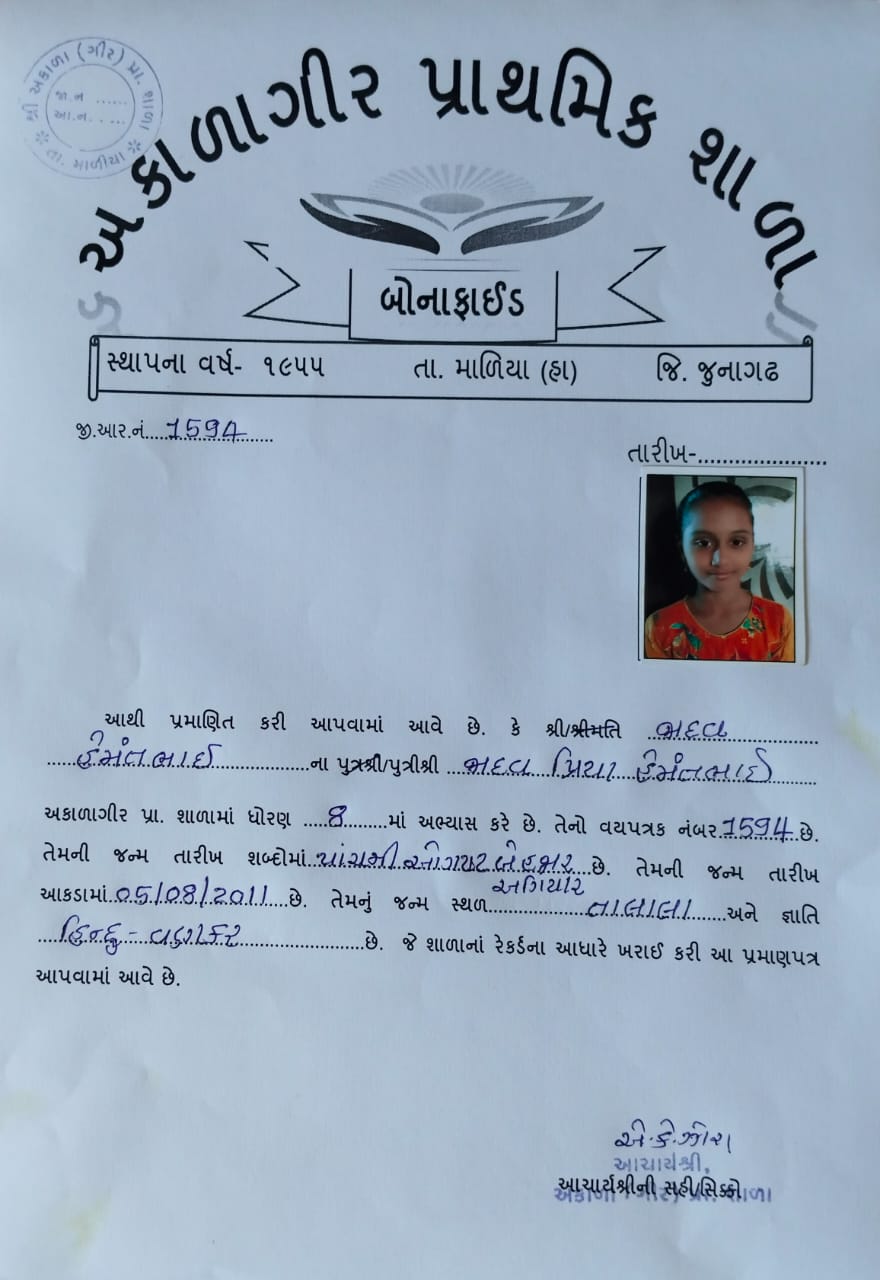 શ્રી અકાળા (ગીર) પ્રા. શાળા
જા.ન ......
આ.ન. . ...
તા. માળીયા
અકાળાગીર પ્રાથમિક શાળા
બોનાફાઈડ
સ્થાપના વર્ષ- ૧૯૫૫ તા. માળિયા (હા) જિ. જુનાગઢ
જી.આર.નં....1594..........
તારીખ-.....................
આથી પ્રમાણિત કરી આપવામાં આવે છે. કે શ્રી/શ્રીમતિ ભદલ
હેમંતભાઈ ના પુત્રશ્રી/પુત્રીશ્રી ભદલ પ્રિયા હેમંતભાઈ
અકાળાગીર પ્રા. શાળામાં ધોરણ ....8.......માં અભ્યાસ કરે છે. તેનો વયપત્રક નંબર.1594.છે.
તેમની જન્મ તારીખ શબ્દોમાં પાંચમી ઓગષ્ટ બેહજાર છે. તેમની જન્મ તારીખ
અગિયાર
આકડામાં.05/08/2011...છે. તેમનું જન્મ સ્થળ................તાલાલા......અને જ્ઞાતિ
....હિન્દુ - વણકર....................છે. જે શાળાનાં રેકર્ડના આધારે ખરાઈ કરી આ પ્રમાણપત્ર
આપવામાં આવે છે.
આચાર્યશ્રી,
આચાર્યશ્રીની સહી/સિક્કો
અકાળા (ગીર) પ્રા. શાળા